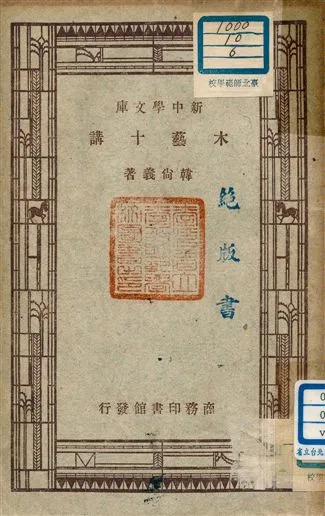 1000
10
6
臺北師範學校
新中學文庫
木藝十講
韓尙義著
絕版書
商務印書館發行